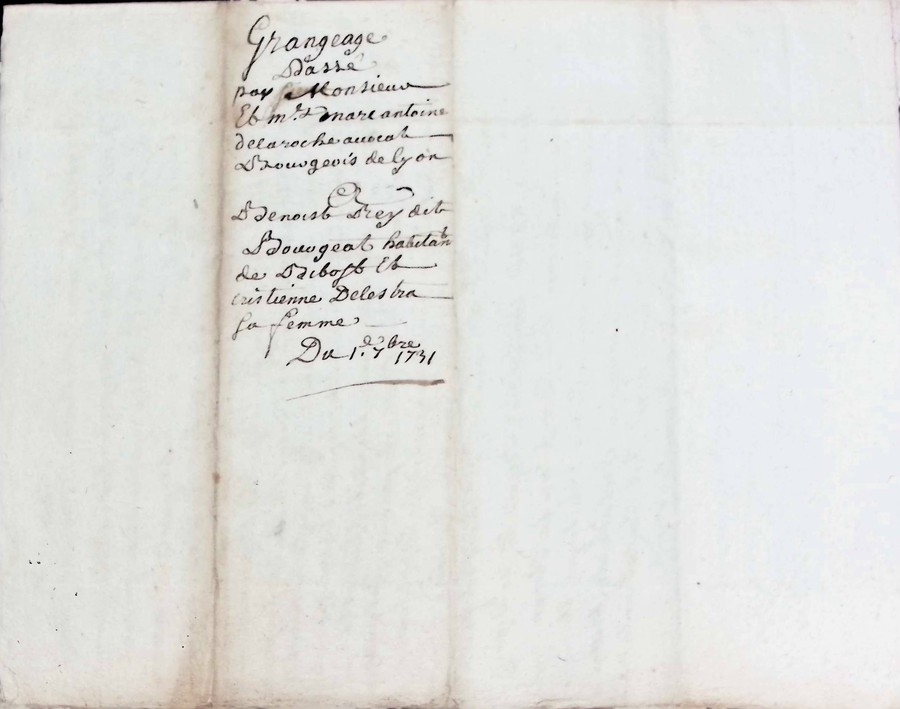 Grangeage
Passé
par Monsieur
Et mr. marc antoine
delaroche avocat
Bourgeois de lyon
A Benoist Rey dit
Bourgeat habitant
de Et
cristienne Delestra
sa femme
Du 1.er 7bre 1731